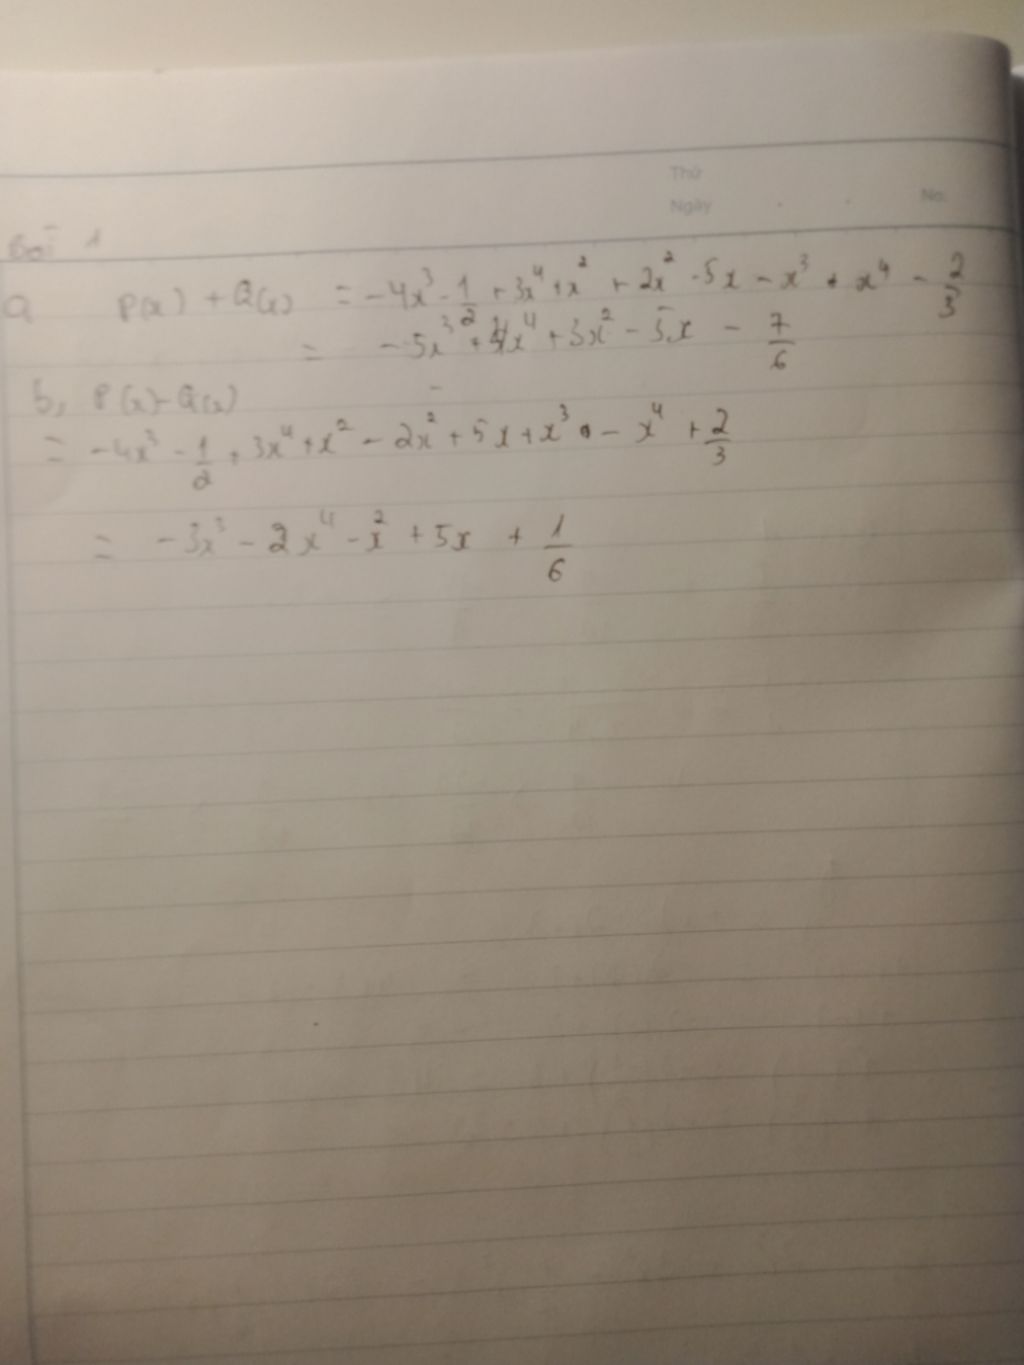 Thứ
Ngày No.
Bài 1
a P(x) + Q(x) = -4x³ - 1/2 + 3x⁴ + x² + 2x² - 5x - x³ + x⁴ - 2/3
= -5x³ + 4x⁴ + 3x² - 5x - 7/6
b, P(x) - Q(x)
= -4x³ - 1/2 + 3x⁴ + x² - 2x² + 5x + x³ - x⁴ + 2/3
= -3x³ - 2x⁴ - x² + 5x + 1/6